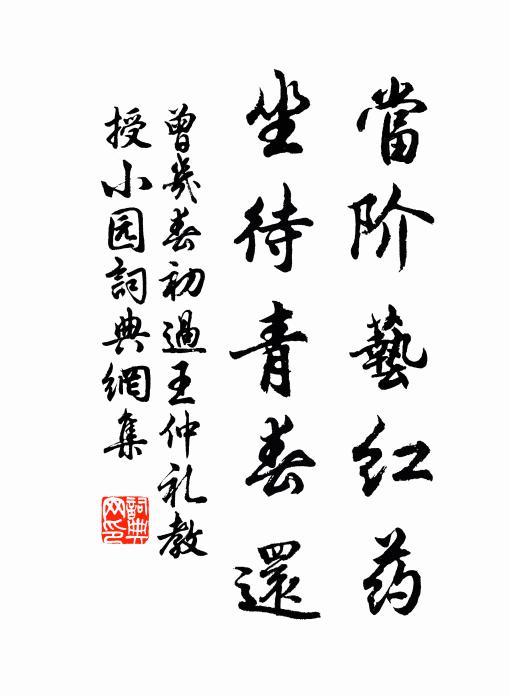 當阶藝红药
坐待青春還
曾幾春初過王仲礼教
授小园詞典網集
詞典網印